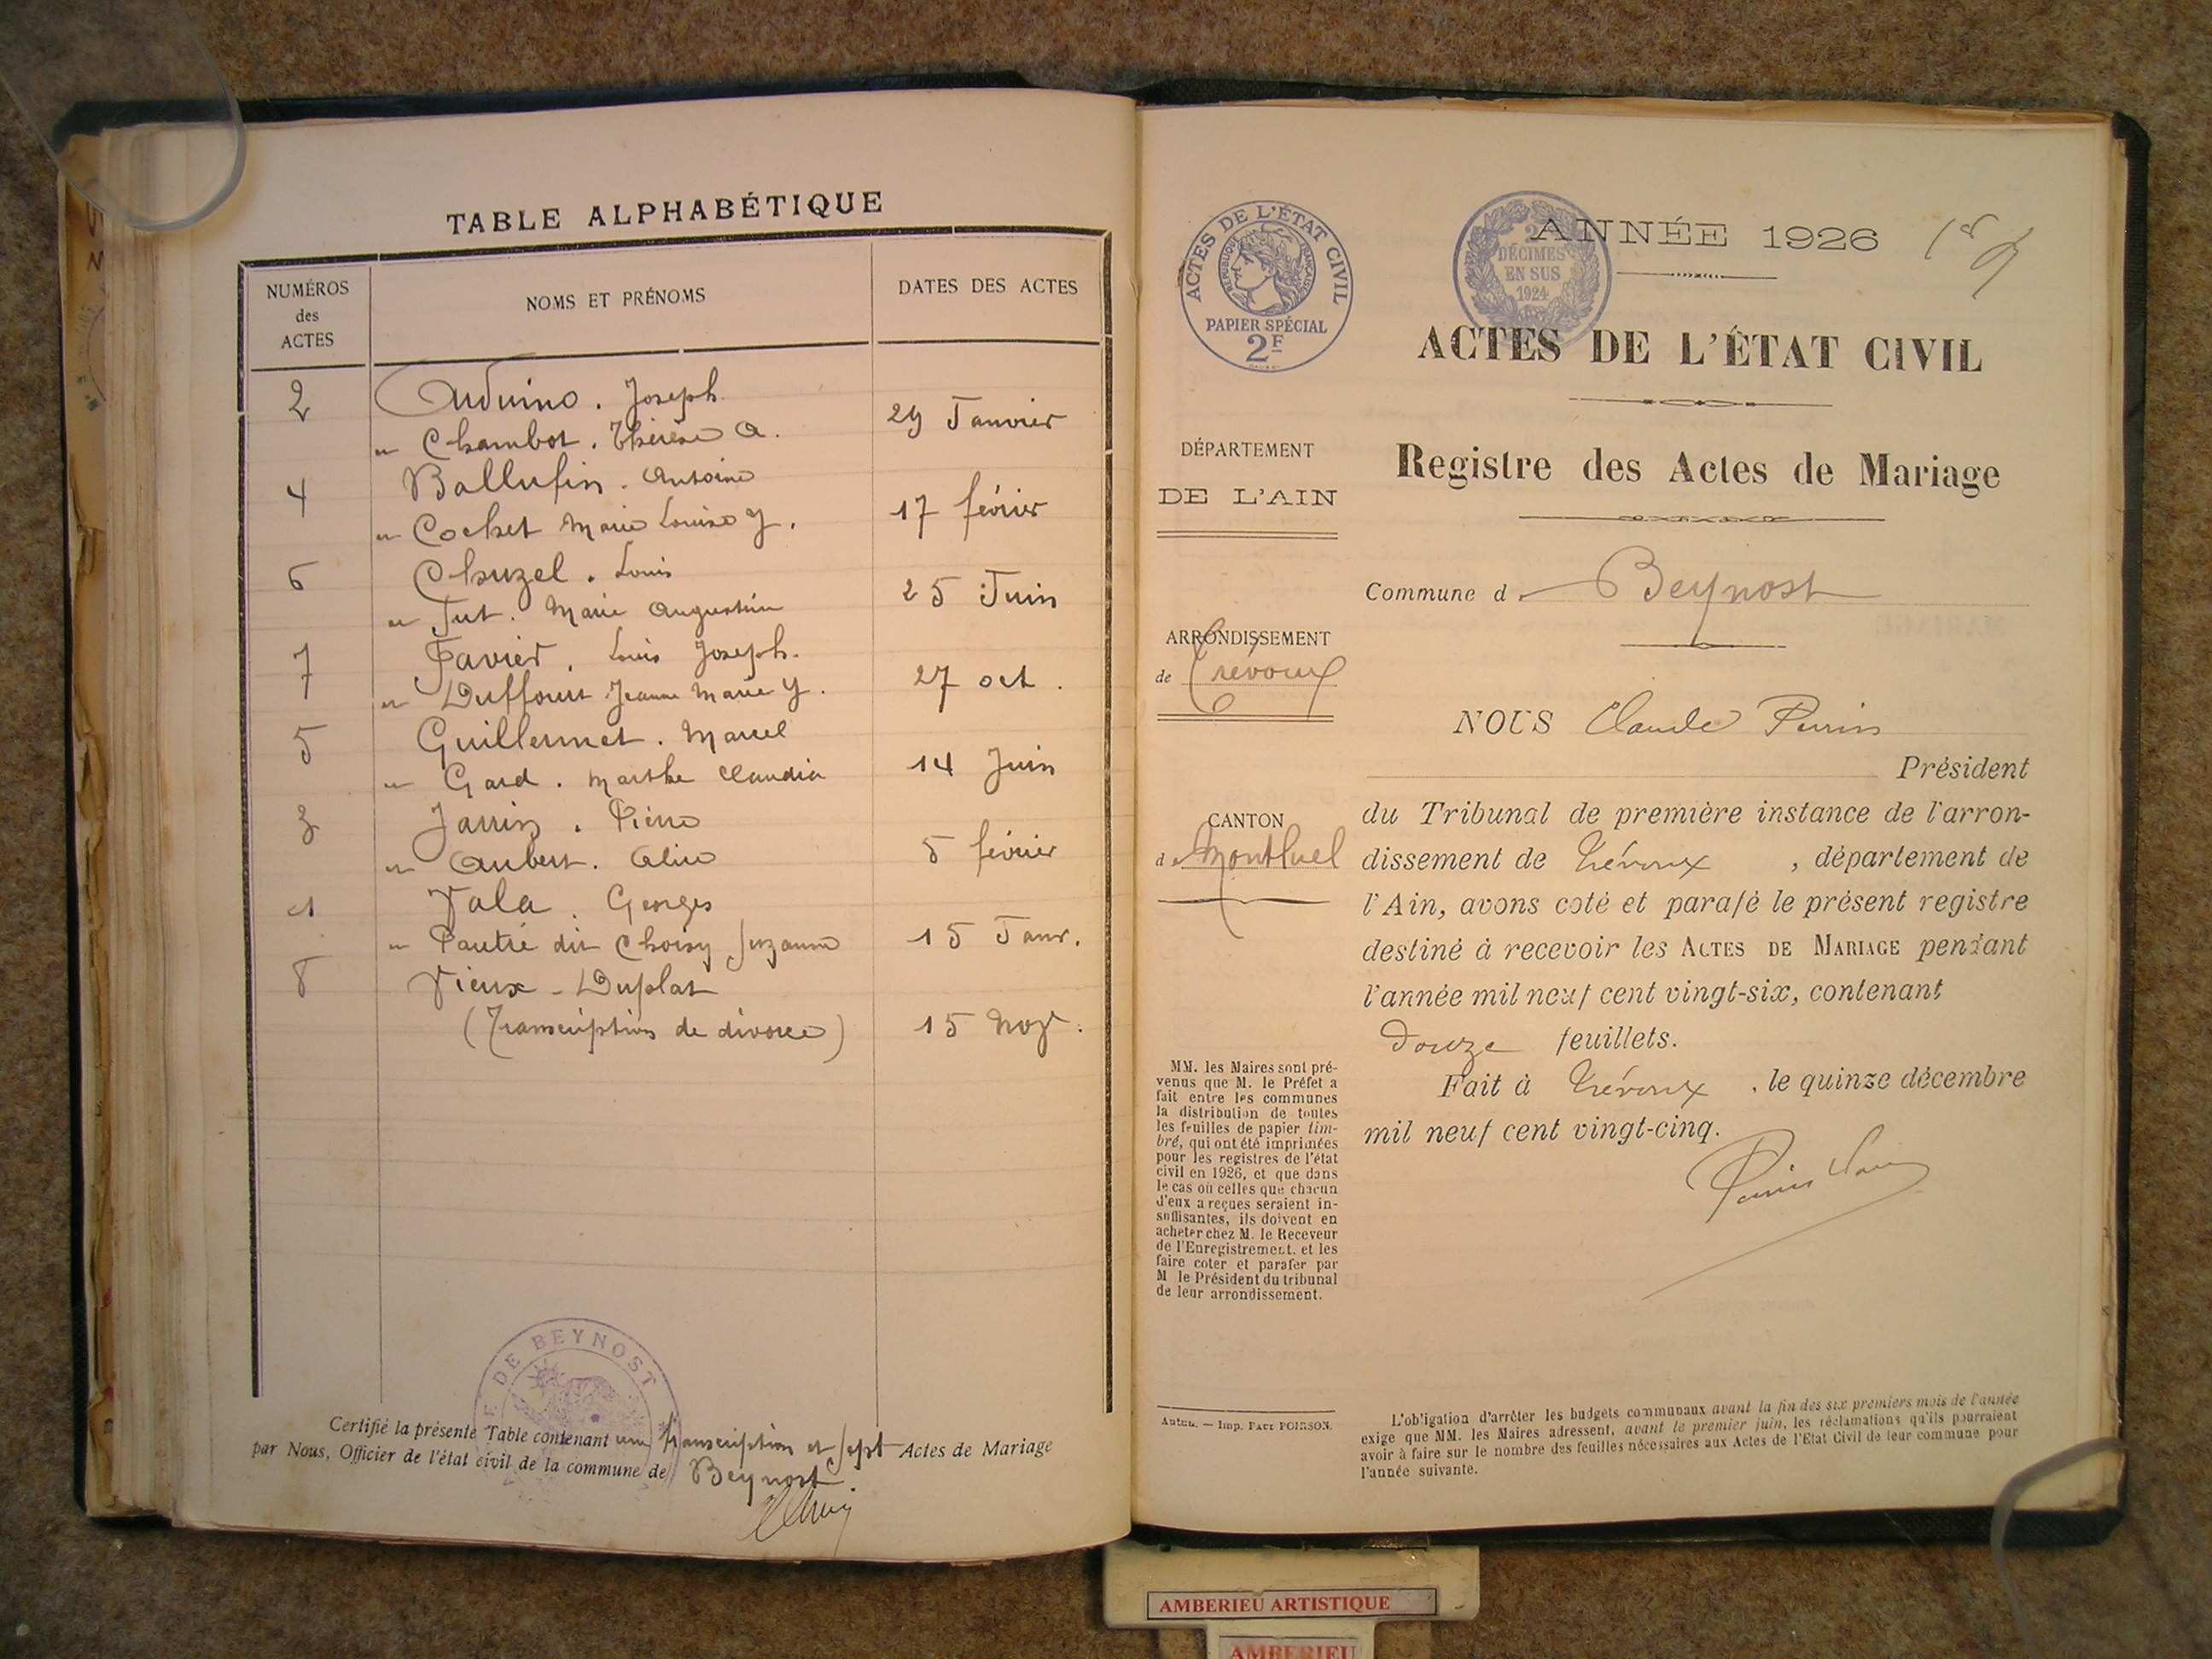 TABLE ALPHABÉTIQUE
NUMÉROS des ACTES
NOMS ET PRÉNOMS
DATES DES ACTES
2 Joseph
Chambot. Thérèse A. 29 Janvier
4 Ballufin. Antoine
Cochet Marie Louise Y. 17 février
6 Chuzel. Louis
Jut. Marie Augustine 25 Juin
7 Favier, Louis Joseph.
Duffour Jeanne Marie Y. 27 oct.
5 Guillermet. Marcel
Gard. Marthe Claudia 14 Juin
3 Jarrin. Pierre
Aubert. Aline 8 février
1 Vala. Georges
Pautré dit Choisy Suzanne 15 Janv.
8 Vieux - Duplat
(Transcription de divorce) 15 Nov.
DE BEYNOST
Certifié la présente Table contenant une transcription et sept Actes de Mariage
par Nous, Officier de l'état civil de la commune de Beynost
ACTES DE L'ÉTAT CIVIL
RÉPUBLIQUE FRANÇAISE
PAPIER SPÉCIAL
2F
2
DÉCIMES
EN SUS
1924
ANNÉE 1926
ACTES DE L'ÉTAT CIVIL
Registre des Actes de Mariage
Commune d Beynost
DÉPARTEMENT
DE L'AIN
ARRONDISSEMENT
de Trévoux
CANTON
de Montluel
MM. les Maires sont pré-
venus que M. le Préfet a
fait entre les communes
la distribution de toutes
les feuilles de papier tim-
bré, qui ont été imprimées
pour les registres de l'état
civil en 1926, et que dans
le cas où celles que chacun
d'eux a reçues seraient in-
suffisantes, ils doivent en
acheter chez M. le Receveur
de l'Enregistrement. et les
faire coter et parafer par
M le Président du tribunal
de leur arrondissement.
Autun. — Imp. Paul POIRSON.
NOUS Claude Perrin
Président
du Tribunal de première instance de l'arron-
dissement de Trévoux, département de
l'Ain, avons coté et parafé le présent registre
destiné à recevoir les ACTES DE MARIAGE pendant
l'année mil neuf cent vingt-six, contenant
Douze feuillets.
Fait à Trévoux, le quinze décembre
mil neuf cent vingt-cinq.
L'obligation d'arrêter les budgets communaux avant la fin des six premiers mois de l'année
exige que MM. les Maires adressent, avant le premier juin, les réclamations qu'ils pourraient
avoir à faire sur le nombre des feuilles nécessaires aux Actes de l'Etat Civil de leur commune pour
l'année suivante.
AMBERIEU ARTISTIQUE
AMBERIEU